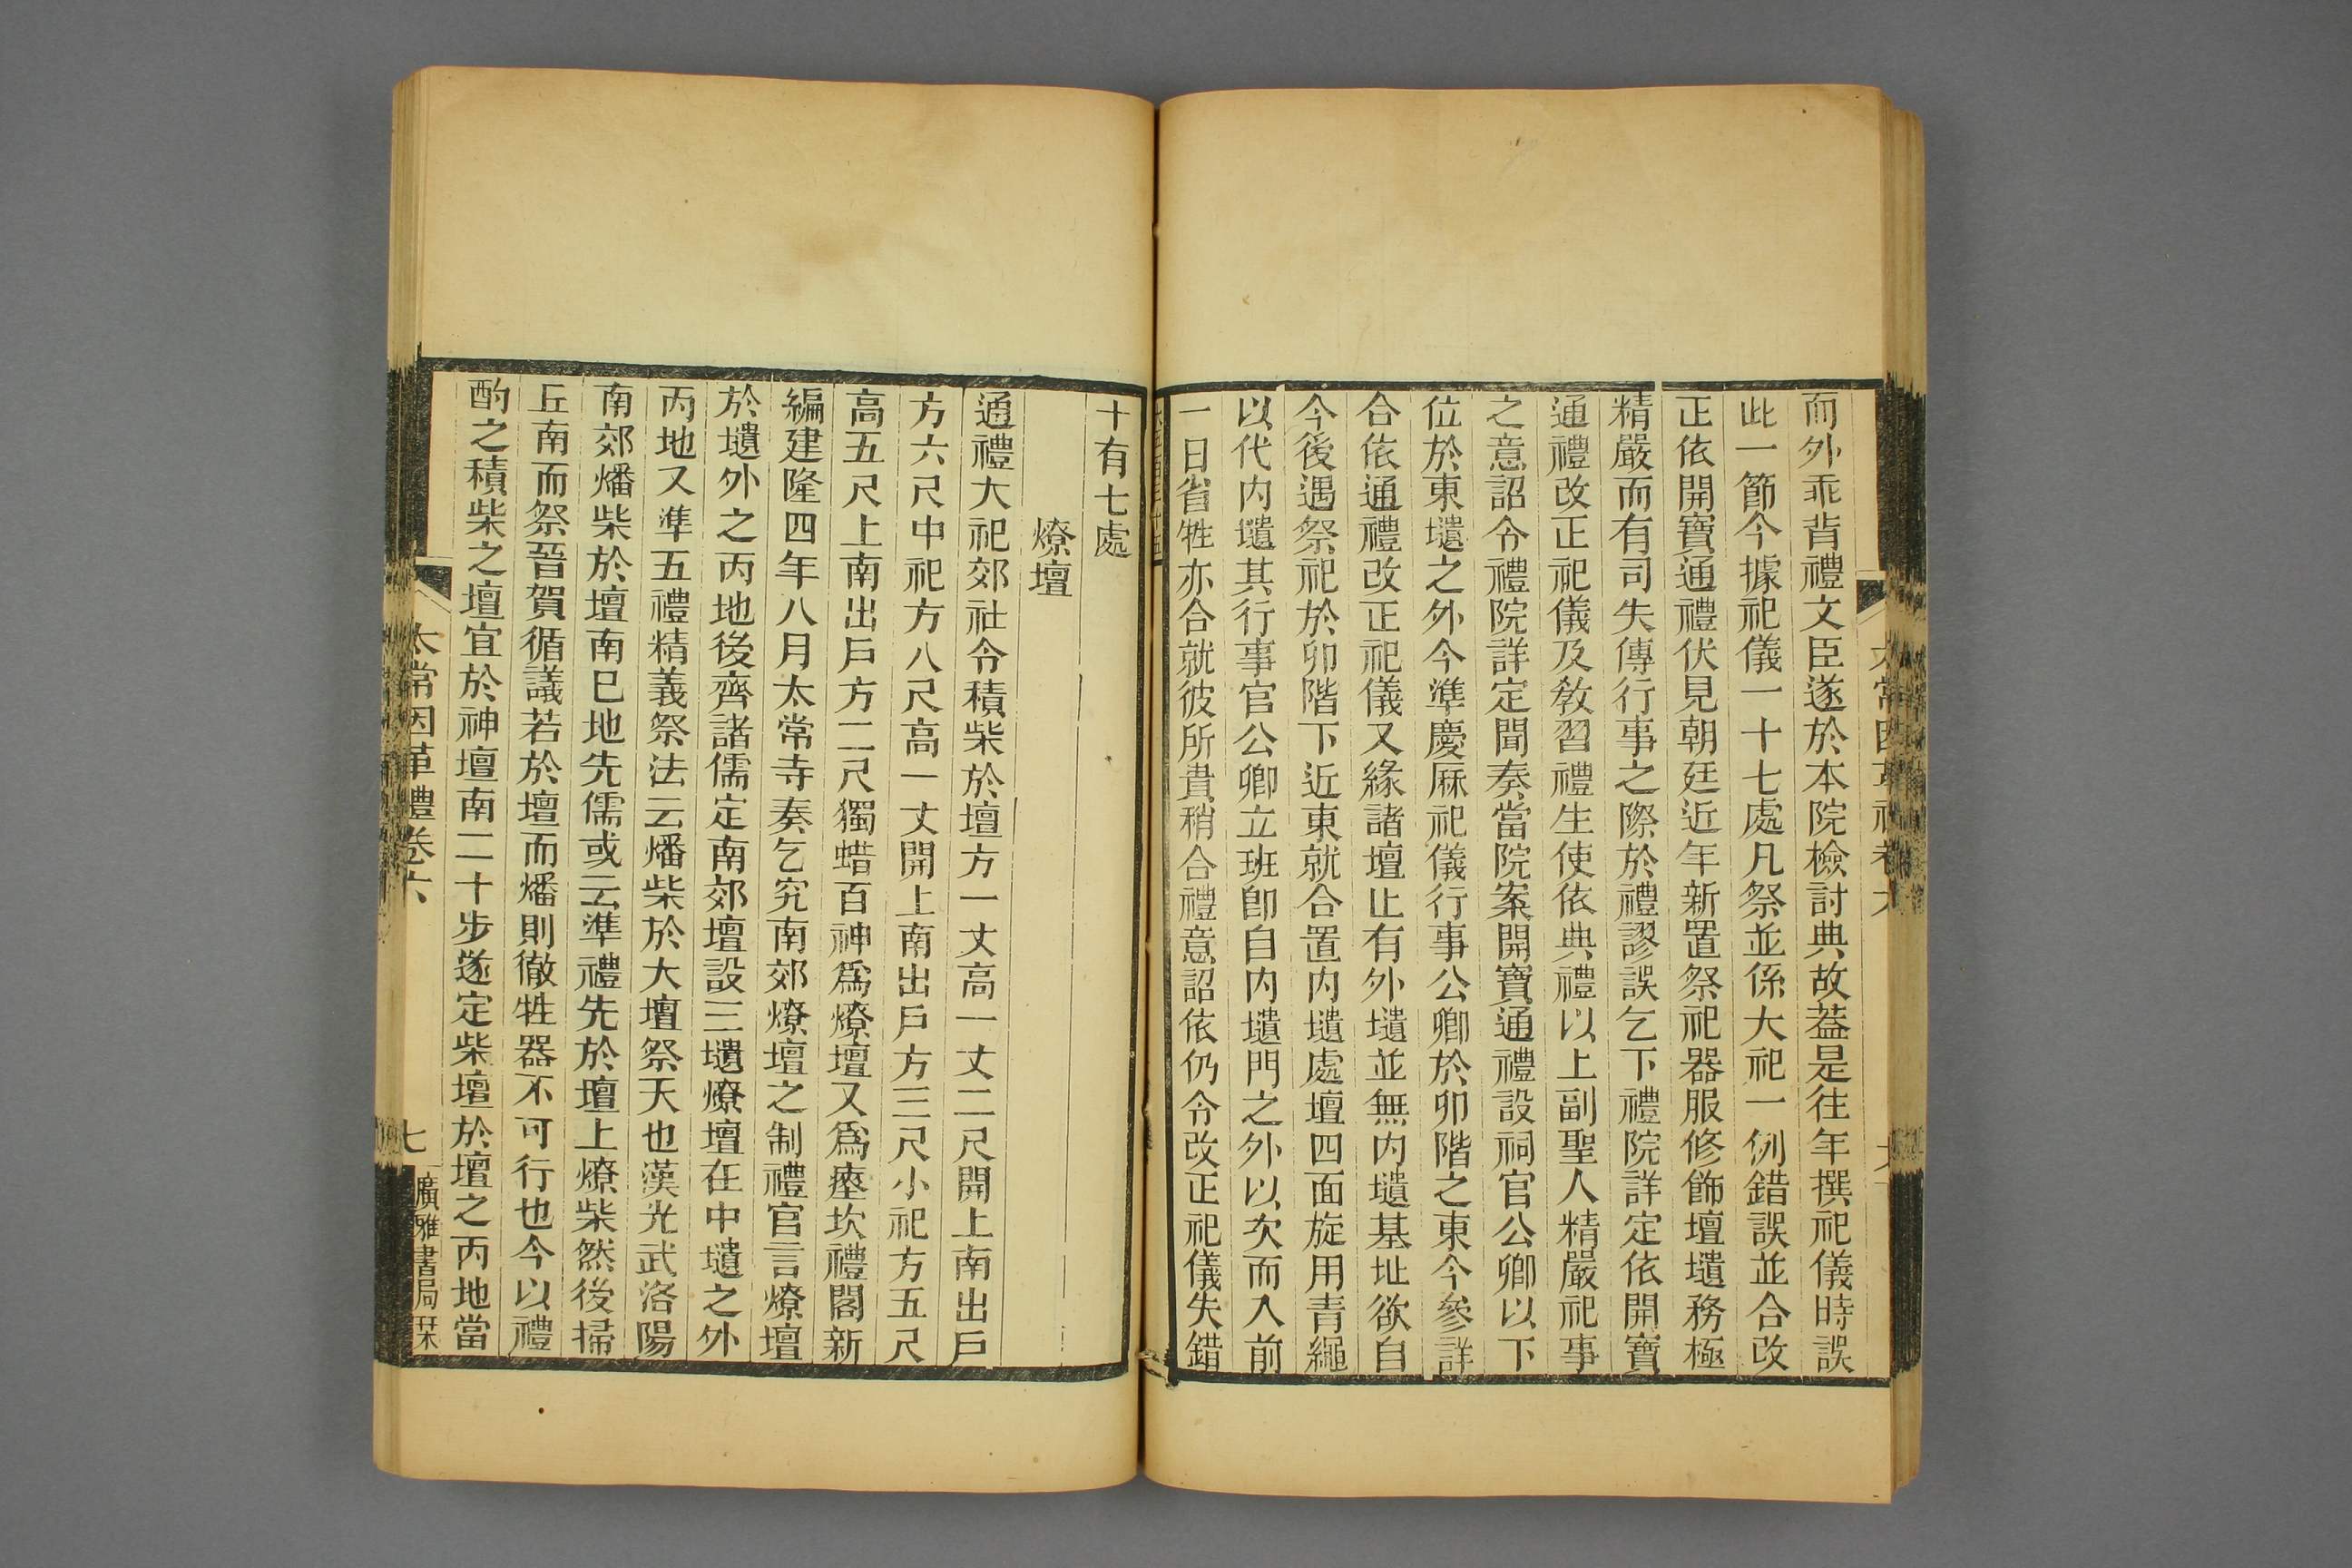 而外乖背禮文臣遂於本院檢討典故葢是往年撰祀儀時誤
此一節今據祀儀一十七處凡祭並係大祀一例錯誤並合改
正依開寶通禮伏見朝廷近年新置祭祀器服修飾壇壝務極
精嚴而有司失傳行事之際於禮謬誤乞下禮院詳定依開寶
通禮改正祀儀及教習禮生使依典禮以上副聖人精嚴祀事
之意詔令禮院詳定聞奏當院案開寶通禮設祠官公卿以下
位於東壝之外今準慶厤祀儀行事公卿於卯階之東今參詳
合依通禮改正祀儀又緣諸壇止有外壝並無内壝基址欲自
今後遇祭祀於卯階下近東就合置内壝處壇四面旋用青繩
以代内壝其行事官公卿立班卽自内壝門之外以次而入前
一日省牲亦合就彼所貴稍合禮意詔依仍令改正祀儀失錯
十有七處
燎壇
通禮大祀郊社令積柴於壇方一丈高一丈二尺開上南出戶
方六尺中祀方八尺高一丈開上南出戶方三尺小祀方五尺
高五尺上南出戶方二尺獨蜡百神爲燎壇又爲瘞坎禮閣新
編建隆四年八月太常寺奏乞究南郊燎壇之制禮官言燎壇
於壝外之丙地後齊諸儒定南郊壇設三壝燎壇在中壝之外
丙地又準五禮精義祭法云燔柴於大壇祭天也漢光武洛陽
南郊燔柴於壇南巳地先儒或云準禮先於壇上燎柴然後掃
丘南而祭晉賀循議若於壇而燔則徹牲器不可行也今以禮
酌之積柴之壇宜於神壇南二十步遂定柴壇於壇之丙地當
太常因革禮卷六
七
廣雅書局栞